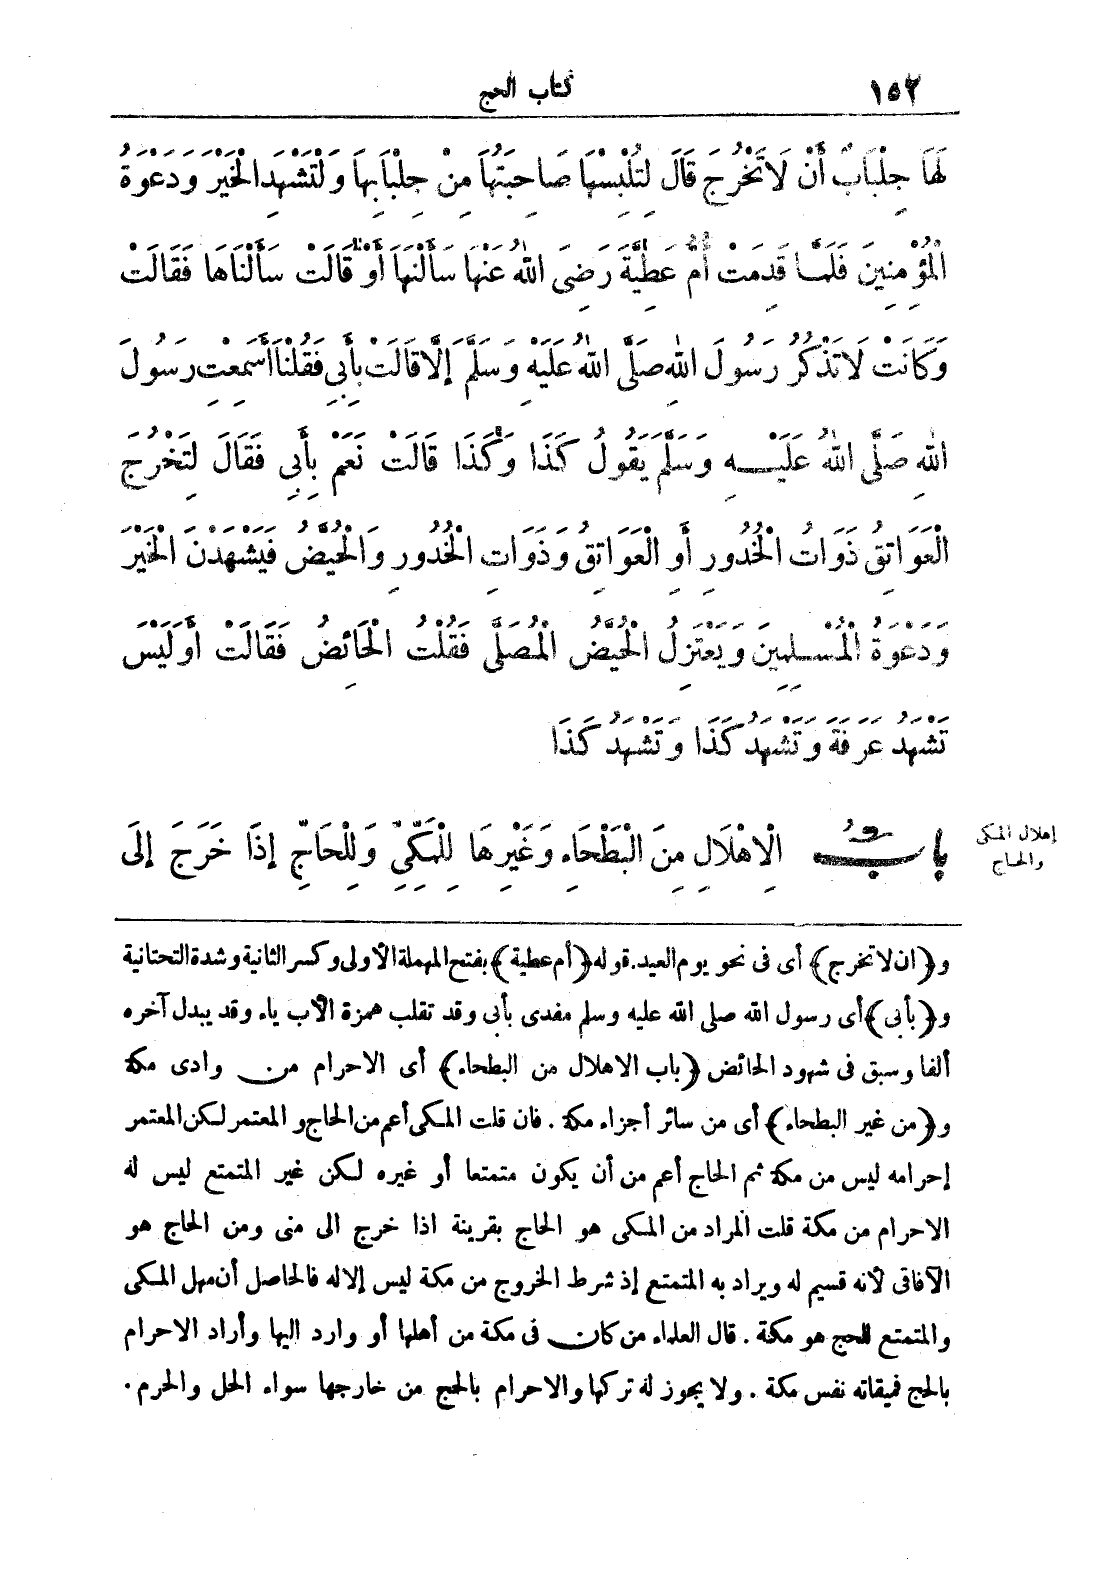 ١٥٢ كتاب الحج
لَهَا جِلْبَابٌ أَنْ لَا تَخْرُجَ قَالَ لِتُلْبِسْهَا صَاحِبَتُهَا مِنْ جِلْبَابِهَا وَلْتَشْهَدِ الْخَيْرَ وَدَعْوَةَ
الْمُؤْمِنِينَ فَلَمَّا قَدِمَتْ أُمُّ عَطِيَّةَ رَضِىَ اللهُ عَنْهَا سَأَلْنَهَا أَوْ قَالَتْ سَأَلْنَاهَا فَقَالَتْ
وَكَانَتْ لَا تَذْكُرُ رَسُولَ اللهِ صَلَّى اللهُ عَلَيْهِ وَسَلَّمَ إِلَّا قَالَتْ بِأَبِى فَقُلْنَا أَسَمِعْتِ رَسُولَ
اللهِ صَلَّى اللهُ عَلَيْهِ وَسَلَّمَ يَقُولُ كَذَا وَكَذَا قَالَتْ نَعَمْ بِأَبِى فَقَالَ لِتَخْرُجِ
الْعَوَاتِقُ ذَوَاتُ الْخُدُورِ أَوِ الْعَوَاتِقُ وَذَوَاتِ الْخُدُورِ وَالْحُيَّضُ فَيَشْهَدْنَ الْخَيْرَ
وَدَعْوَةَ الْمُسْلِمِينَ وَيَعْتَزِلُ الْحُيَّضُ الْمُصَلَّى فَقُلْتُ الْحَائِضُ فَقَالَتْ أَوَلَيْسَ
تَشْهَدُ عَرَفَةَ وَتَشْهَدُ كَذَا وَتَشْهَدُ كَذَا
بَابُ الْإِهْلَالِ مِنَ الْبَطْحَاءِ وَغَيْرِهَا لِلْمَكِّىِّ وَلِلْحَاجِّ إِذَا خَرَجَ إِلَى
إهلال المكى
والحاج
و﴿ان لا تخرج﴾ أى فى نحو يوم العيد. قوله ﴿أم عطية﴾ بفتح المهملة الأولى وكسر الثانية وشدة التحتانية
و﴿بأبى﴾ أى رسول الله صلى الله عليه وسلم مفدى بأبى وقد تقلب همزة الأب ياء وقد يبدل آخره
ألفا وسبق فى شهود الحائض ﴿باب الاهلال من البطحاء﴾ أى الاحرام من وادى مكة
و﴿من غير البطحاء﴾ أى من سائر أجزاء مكة . فان قلت المكى أعم من الحاج و المعتمر لكن المعتمر
إحرامه ليس من مكة ثم الحاج أعم من أن يكون متمتعا أو غيره لكن غير المتمتع ليس له
الاحرام من مكة قلت المراد من المكى هو الحاج بقرينة اذا خرج الى منى ومن الحاج هو
الآفاقى لأنه قسيم له ويراد به المتمتع إذ شرط الخروج من مكة ليس إلا له فالحاصل أن مهل المكى
والمتمتع للحج هو مكة . قال العلماء من كان فى مكة من أهلها أو وارد اليها وأراد الاحرام
بالحج فميقاته نفس مكة . ولا يجوز له تركها والاحرام بالحج من خارجها سواء الحل والحرم .